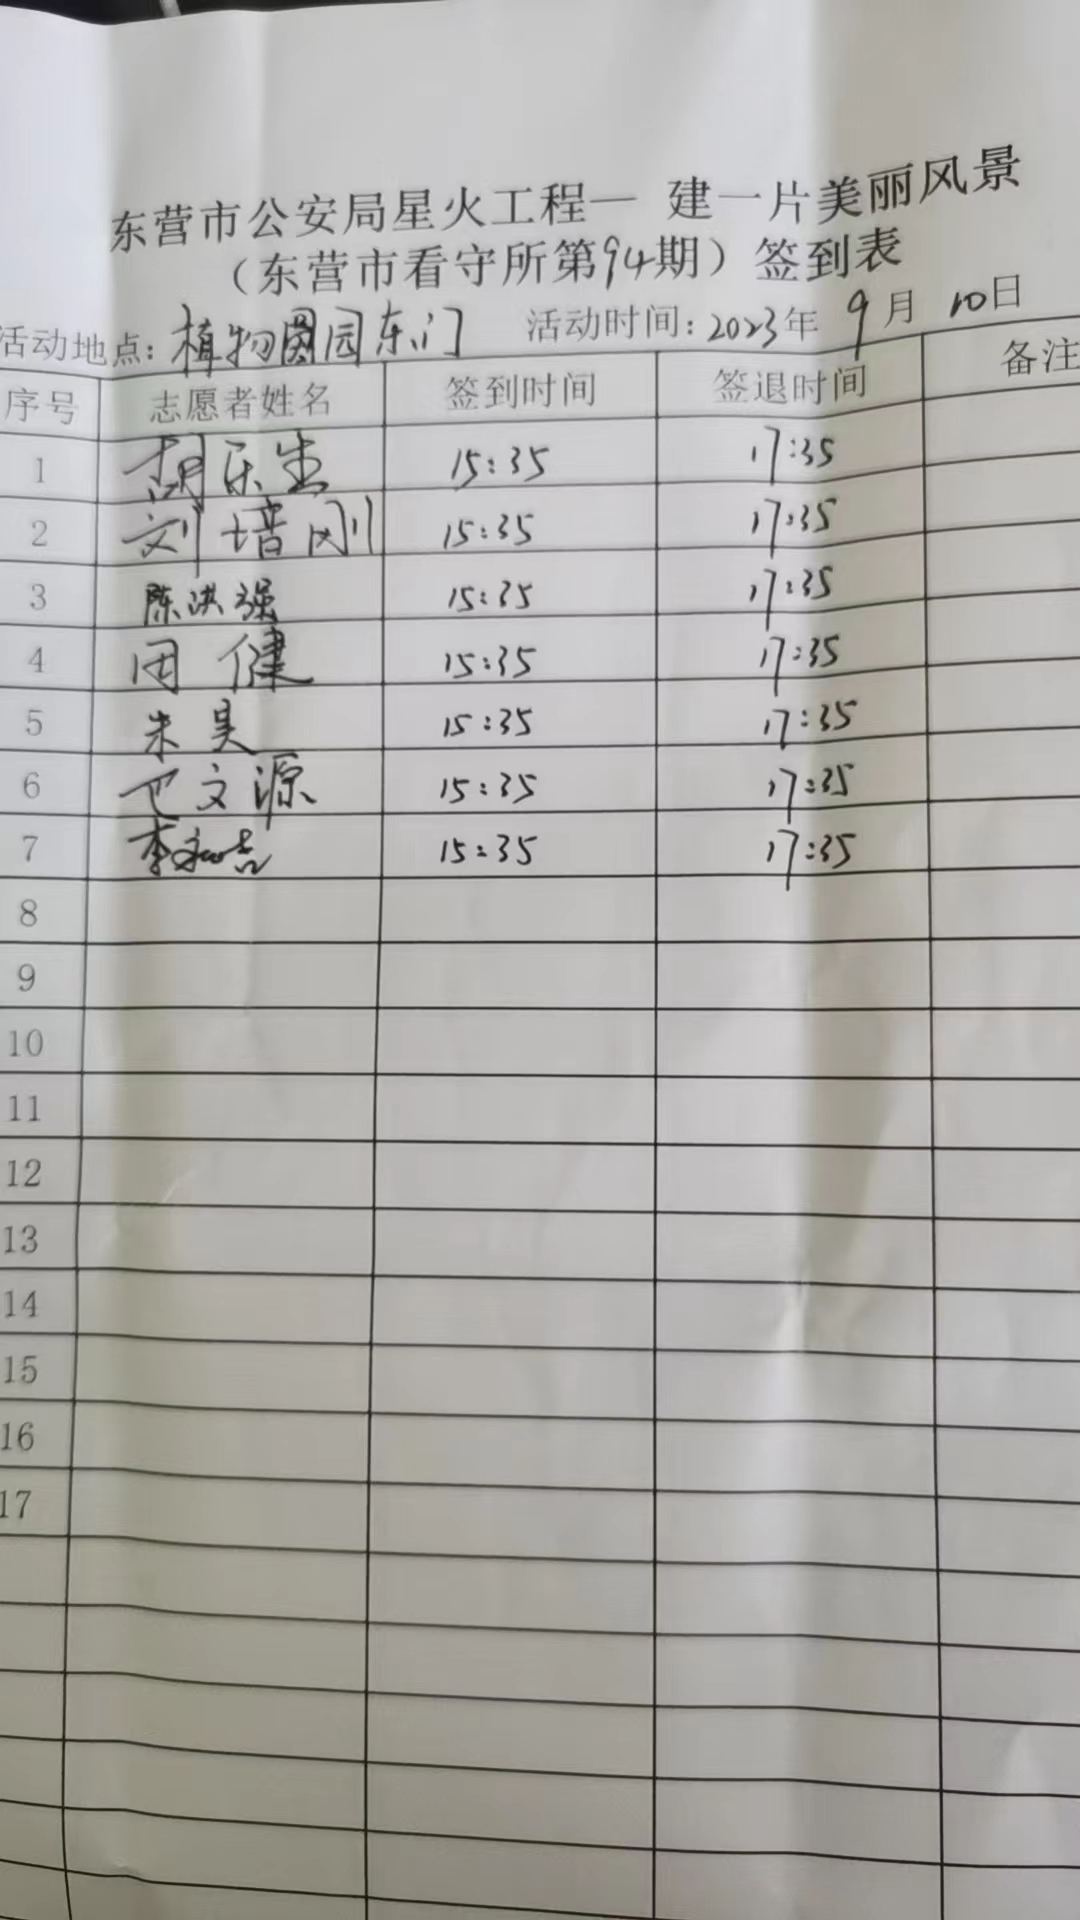 东营市公安局星火工程— 建一片美丽风景
（东营市看守所第94期）签到表
活动地点：植物园东门 活动时间：2023年 9月 10日
序号 志愿者姓名 签到时间 签退时间 备注
1 胡乐生 15:35 17:35
2 刘培刚 15:35 17:35
3 陈洪强 15:35 17:35
4 田健 15:35 17:35
5 朱昊 15:35 17:35
6 巴文源 15:35 17:35
7 李 15:35 17:35
8
9
10
11
12
13
14
15
16
17